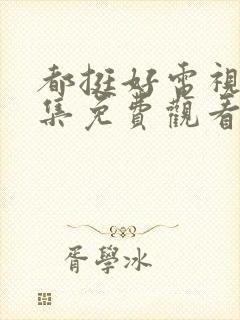 都挺好電視
集免費觀看
胥學冰